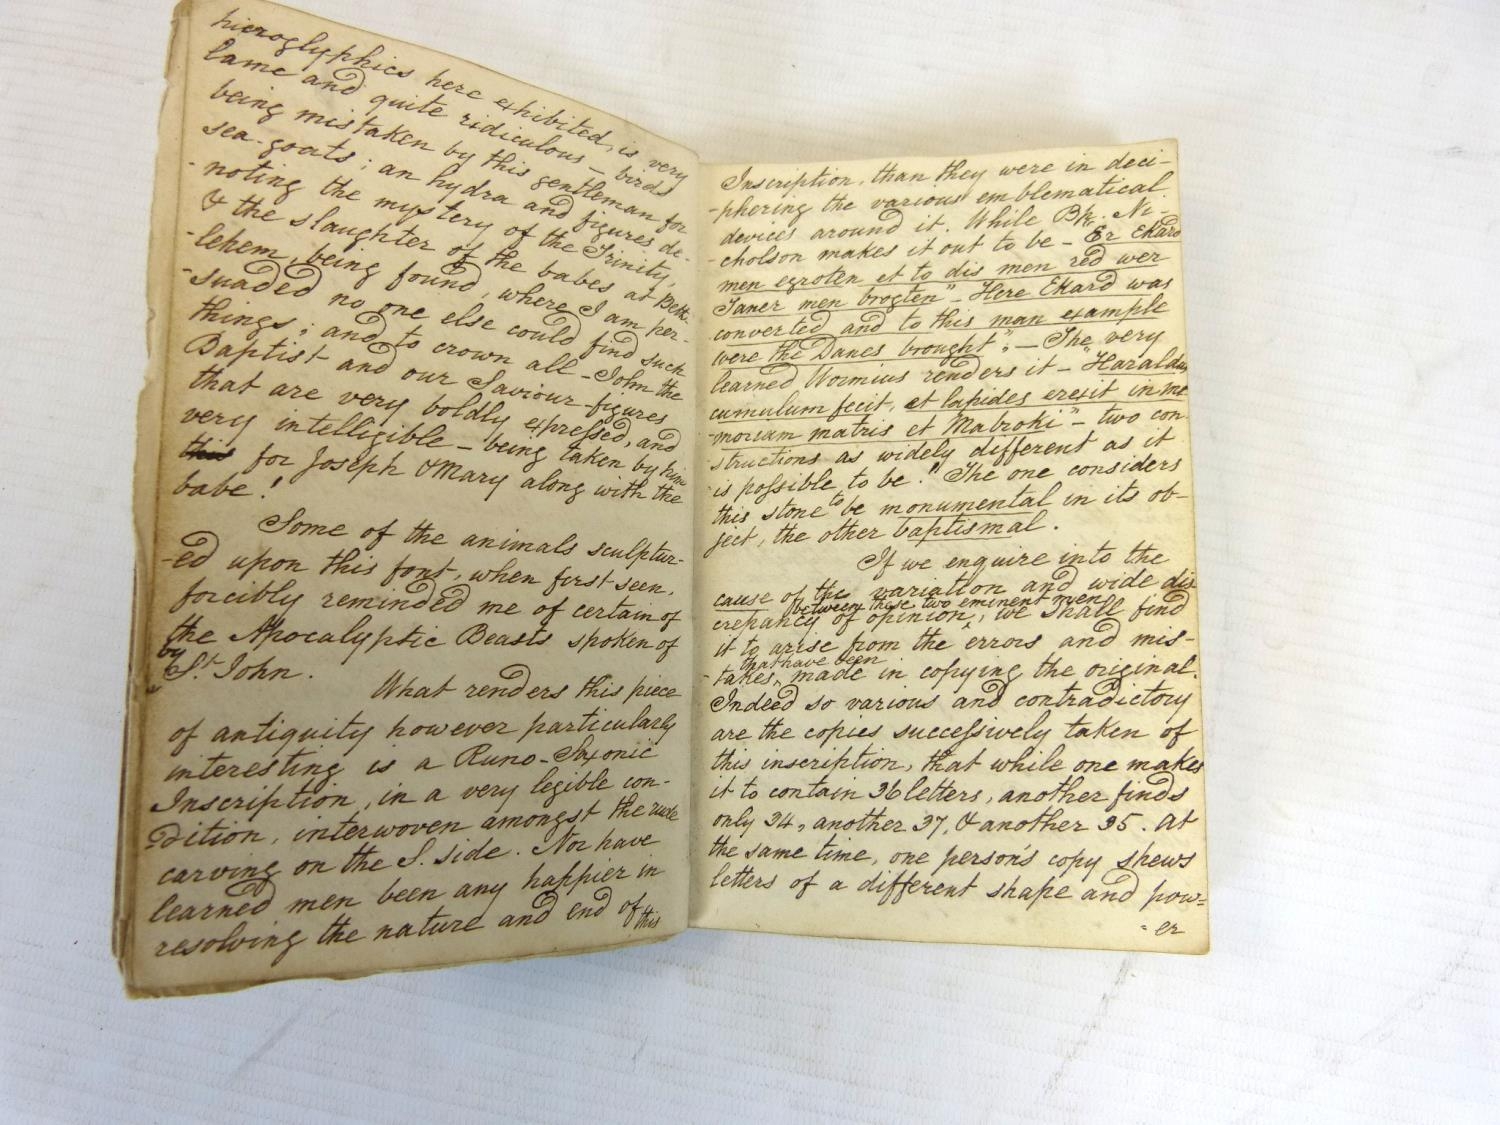 hieroglyphics here exhibited, is very
lame and quite ridiculous – birds
being mistaken by this gentleman for
sea-goats; an hydra and figures de-
-noting the mystery of the Trinity,
& the slaughter of the babes at Beth-
-lehem, being found, where I am per-
-suaded no one else could find such
things; and to crown all – John the
Baptist and our Saviour figures
that are very boldly expressed, and
very intelligible – being taken by him
for Joseph & Mary along with the
babe!
Some of the animals sculptur-
-ed upon this font, when first seen,
forcibly reminded me of certain of
the Apocalyptic Beasts spoken of
by St. John.
What renders this piece
of antiquity however particularly
interesting is a Runo-Saxonic
Inscription, in a very legible con-
-dition, interwoven amongst the rude
carving on the S. side. Nor have
learned men been any happier in
resolving the nature and end of this
Inscription, than they were in deci-
-phering the various emblematical
devices around it. While Bp. Ni-
-cholson makes it out to be – Er Ekard
men egroten et to dis men red wer
Taner men brogten" – Here Ekard was
converted and to this man example
were the Danes brought"; – The very
learned Wormius renders it – "Haraldus
cumulum fecit, et lapides erexit in me
-moriam matris et Mabroki" – two con
-structions as widely different as it
is possible to be! The one considers
this stone to be monumental in its ob-
ject, the other baptismal.
If we enquire into the
cause of the variation and wide dis
crepancy between these two eminent men of opinion, we shall find
it to arise from the errors and mis-
-takes, that have been made in copying the original.
Indeed so various and contradictory
are the copies successively taken of
this inscription, that while one makes
it to contain 36 letters, another finds
only 34, another 37, & another 35. At
the same time, one person's copy shews
letters of a different shape and pow=
-er